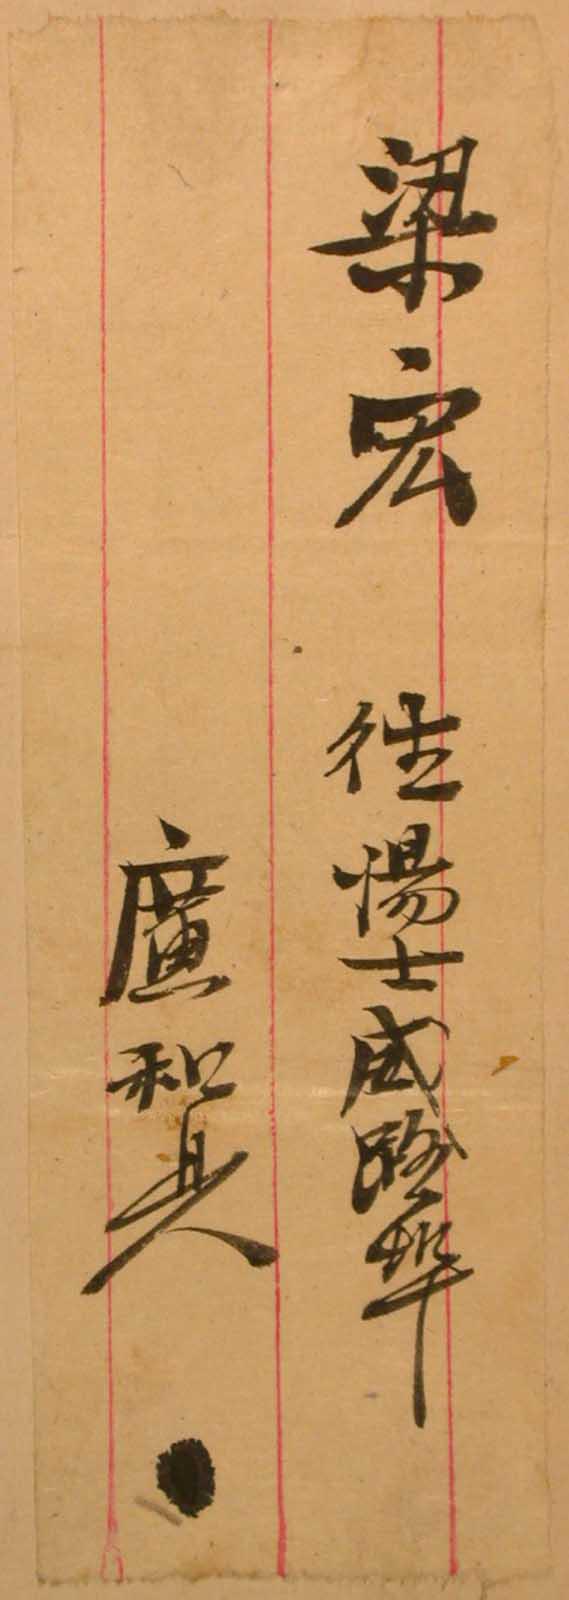 梁宏 往湯士威路埠
廣和具